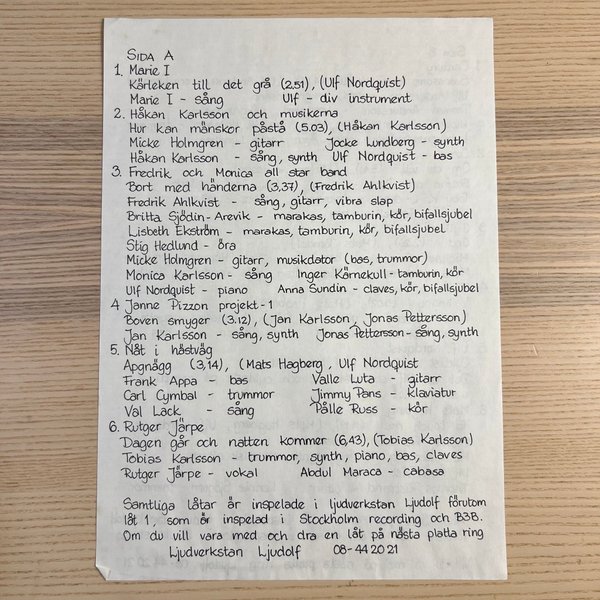 SIDA A
1. Marie I
Kärleken till det grå (2,51), (Ulf Nordquist)
Marie I - sång Ulf - div instrument
2. Håkan Karlsson och musikerna
Hur kan mänskor påstå (5.03), (Håkan Karlsson)
Micke Holmgren - gitarr Jocke Lundberg - synth
Håkan Karlsson - sång, synth Ulf Nordquist - bas
3. Fredrik och Monica all star band
Bort med händerna (3,37), (Fredrik Ahlkvist)
Fredrik Ahlkvist - sång, gitarr, vibra slap
Britta Sjödin-Arevik - marakas, tamburin, kör, bifallsjubel
Lisbeth Ekström - marakas, tamburin, kör, bifallsjubel
Stig Hedlund - öra
Micke Holmgren - gitarr, musikdator (bas, trummor)
Monica Karlsson - sång Inger Kärnekull - tamburin, kör
Ulf Nordquist - piano Anna Sundin - claves, kör, bifallsjubel
4 Janne Pizzon projekt-1
Boven smyger (3.12), (Jan Karlsson, Jonas Pettersson)
Jan Karlsson - sång, synth Jonas Pettersson - sång, synth
5. Nåt i hästväg
Apgnägg (3,14), (Mats Hagberg, Ulf Nordquist
Frank Appa - bas Valle Luta - gitarr
Carl Cymbal - trummor Jimmy Pans - Klaviatur
Val Lack - sång Pålle Russ - kör
6. Rutger Järpe
Dagen går och natten kommer (6,43), (Tobias Karlsson)
Tobias Karlsson - trummor, synth, piano, bas, claves
Rutger Järpe - vokal Abdul Maraca - cabasa
Samtliga låtar är inspelade i ljudverkstan Ljudolf förutom
låt 1, som är inspelad i Stockholm recording och B3B.
Om du vill vara med och dra en låt på nästa platta ring
Ljudverkstan Ljudolf 08-44 20 21